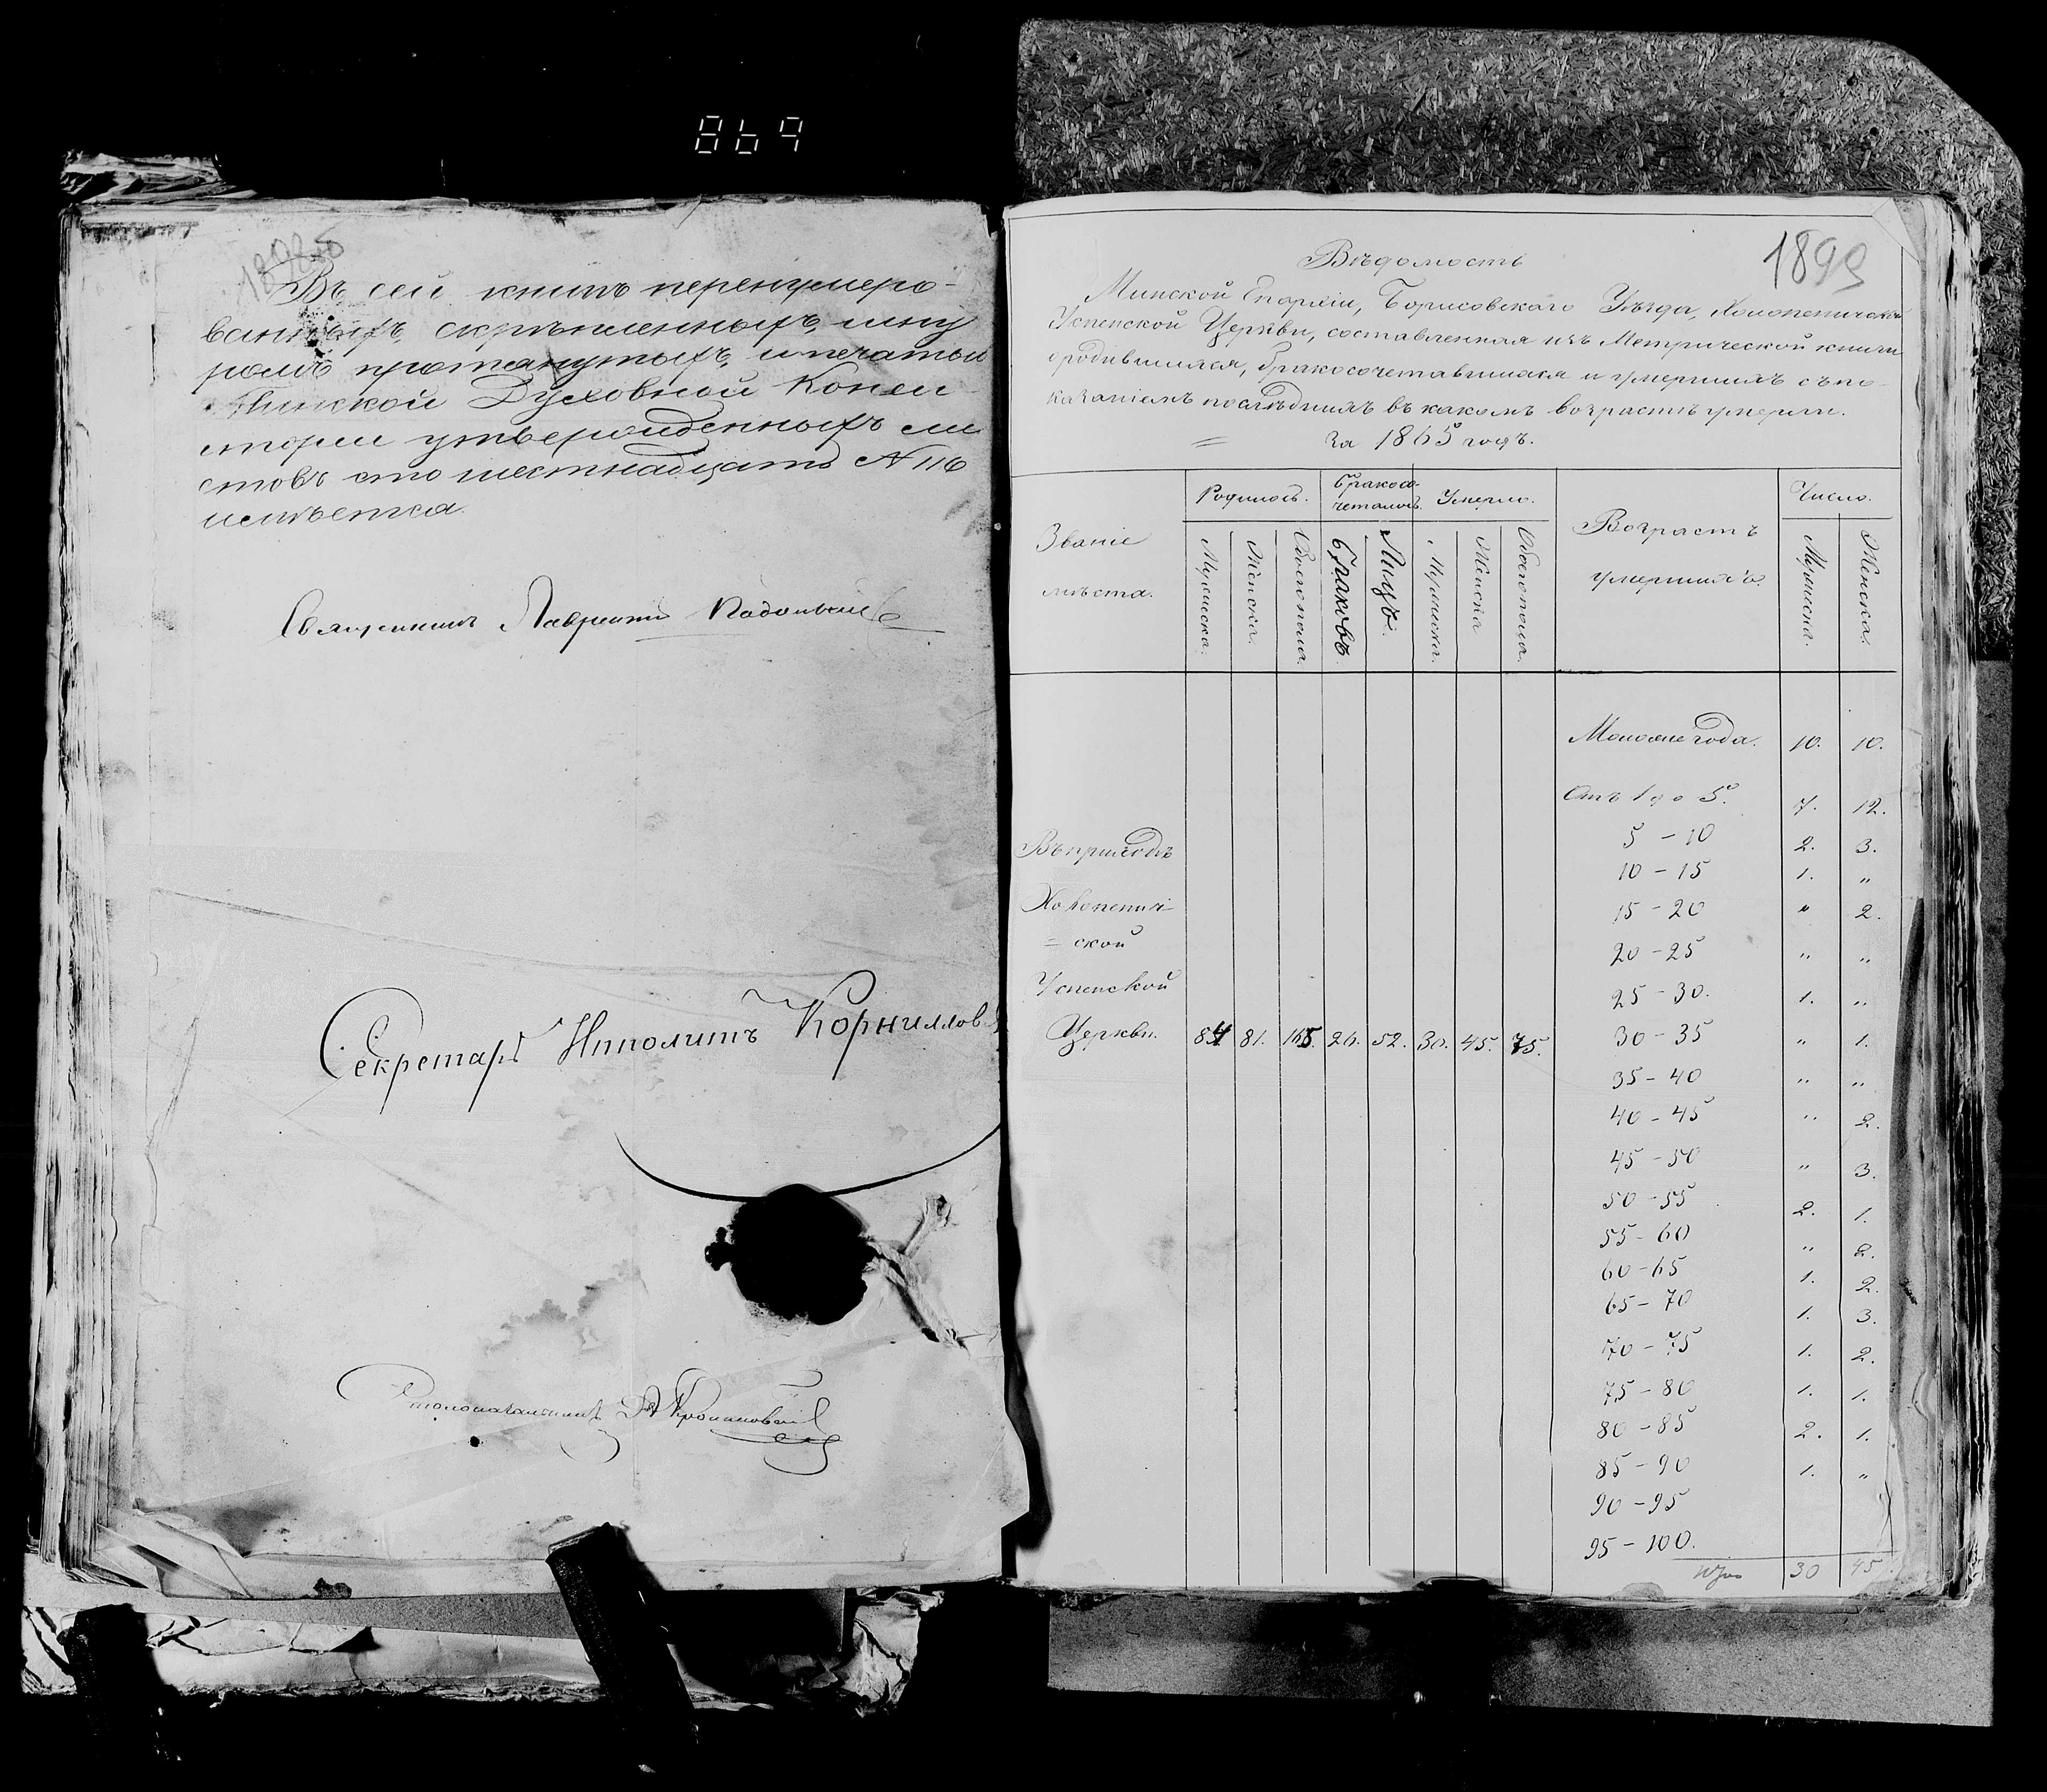 869
18985
Въ сей книгѣ перенумеро-
ванныхъ, скрѣпленныхъ, шну
ромъ протянутыхъ, и печатью
Минской Духовной Конси
сторіи утвержденныхъ ли
стовъ сто шестнадцать N 116
имѣется.
Священникъ Лаврентій
Секретарь Ипполитъ Корниллов
Столоначальникъ
1899
Вѣдомость
Минской Епархіи, Борисовскаго Уѣзда, Холопеничской
Успенской Церкви, составленная изъ Метрической книги
о родившихся, бракосочетавшихся и умершихъ съ по-
казаніемъ послѣднихъ въ какомъ возрастѣ умерли.
= За 1865 годъ.
Званіе мѣста. Родилось. Бракосо-четалось. Умерло. Возрастъ умершихъ. Число.
Мужеска. Женска. Обоего пола. Браковъ. Лицъ. Мужеска. Женска Обоего пола. Мужеска. Женска.
Моложе года. 10. 10.
Отъ 1 до 5. 7. 12.
5 - 10 2. 3.
10 - 15 1. "
15 - 20 " 2.
20 - 25 " "
25 - 30. 1. "
30 - 35 " 1.
35 - 40 " "
40 - 45 " 2.
45 - 50 " 3.
50 - 55 2. 1.
55 - 60 " 2.
60 - 65 1. 2.
65 - 70 1. 3.
70 - 75 1. 2.
75 - 80 1. 1.
80 - 85 2. 1.
85 - 90 1. "
90 - 95
95 - 100.
30 45
Въ приходѣ
Холопенич-
= ской
Успенской
Церкви. 84 81. 165. 26. 52. 30. 45. 75.